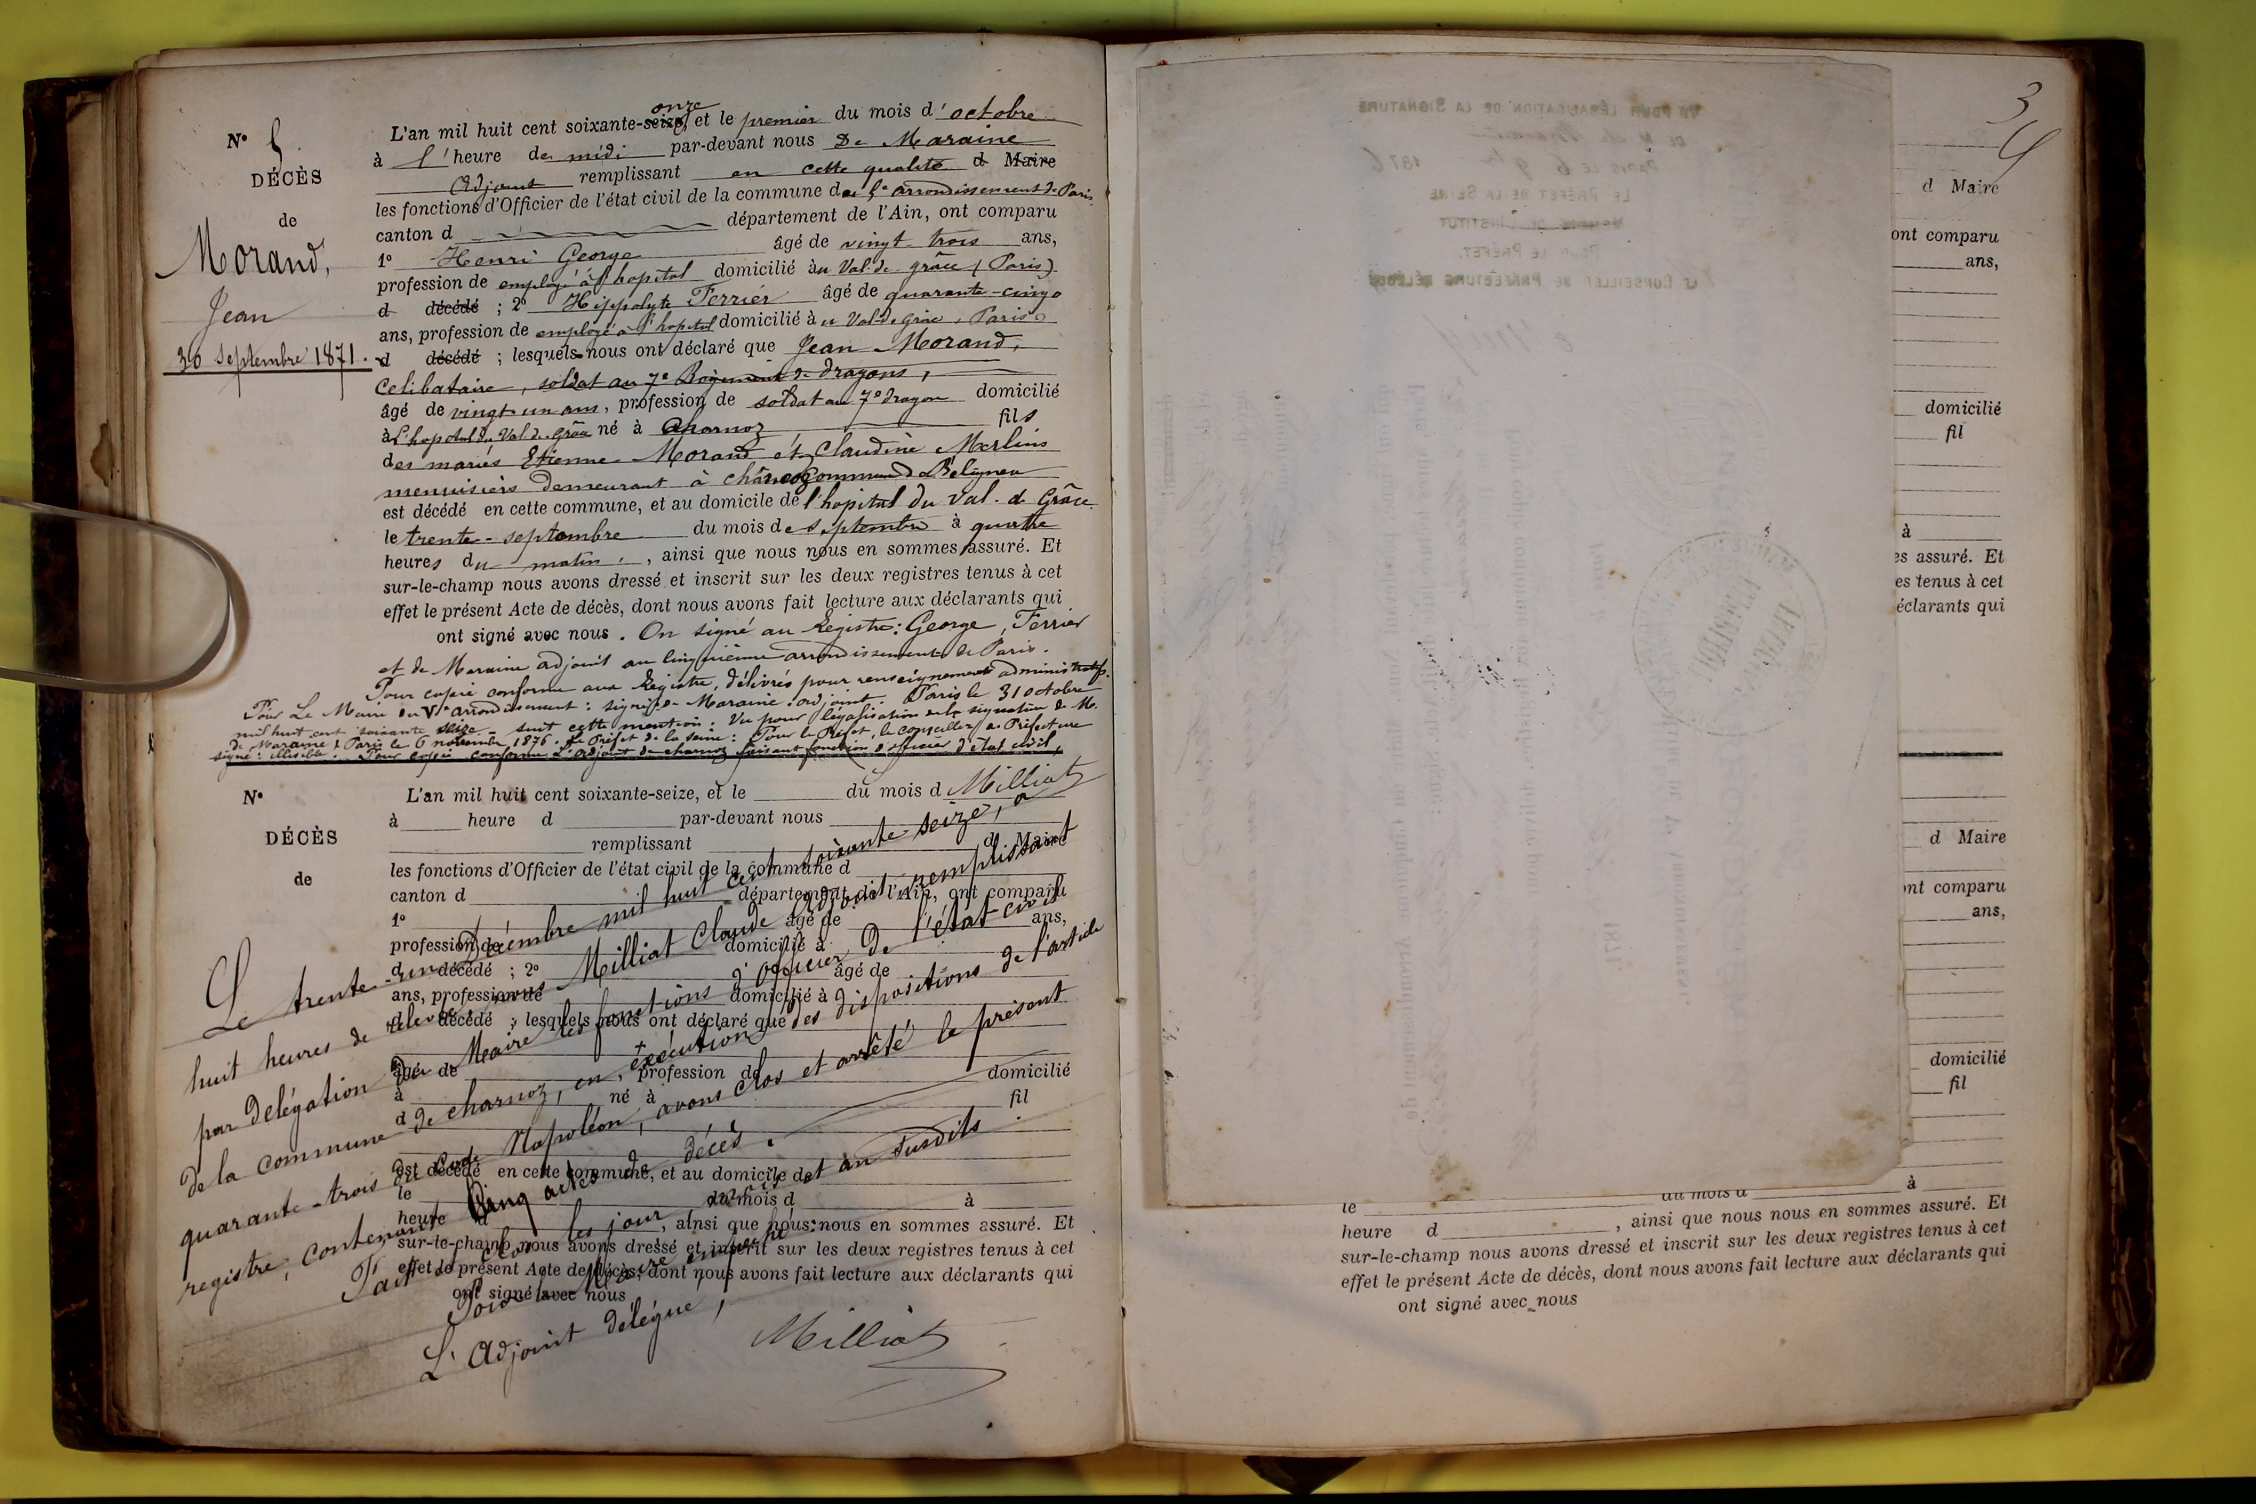 N° 5.
DÉCÈS
de
Morand,
Jean
30 septembre 1871.
onze
L'an mil huit cent soixante-seize, et le premier du mois d'octobre
à l'heure de midi par-devant nous De Maraine
Adjoint remplissant en cette qualité d Maire
les fonctions d'Officier de l'état civil de la commune du 5e arrondissement de Paris
canton d département de l'Ain, ont comparu
1° Henri George âgé de vingt trois ans,
profession de employé à l'hopital domicilié au Val de grâce (Paris)
d décédé ; 2° Hippolyte Ferrier âgé de quarante-cinq
ans, profession de employé à l'hopital domicilié à u Val de grâce, Paris
d décédé ; lesquels nous ont déclaré que Jean Morand,
Celibataire, soldat au 7e Régiment de dragons,
âgé de vingt un ans, profession de soldat au 7e dragon domicilié
à l'hopital du Val de grâce né à Charnoz fils
des mariés Etienne Morand et Claudine Merlin
menuisiers demeurant à charnoz Commune de Beligneu
est décédé en cette commune, et au domicile de l'hopital du Val de Grâce
le trente-septembre du mois de septembre à quatre
heures du matin, ainsi que nous nous en sommes assuré. Et
sur-le-champ nous avons dressé et inscrit sur les deux registres tenus à cet
effet le présent Acte de décès, dont nous avons fait lecture aux déclarants qui
ont signé avec nous. On signé au Registre: George, Ferrier
et de Maraine adjoint au cinquième arrondissement de Paris.
Pour copie conforme aux Registre, délivrés pour renseignements administratifs.
Pour Le Maire du Ve arrondissement: signé: De Maraine adjoint. Paris le 31 octobre
mil huit cent soixante seize - suit cette mention: Vu pour légalisation de la signature de M.
de Maraine Paris le 6 novembre 1876. Le Préfet de la Seine: Pour le Préfet, le Conseiller de Préfecture
signé: illisible. Pour copie conforme L'adjoint de charnoz faisant fonction d'officier d'état civil,
Milliat
N°
DÉCÈS
de
L'an mil huit cent soixante-seize, et le du mois d
à heure d par-devant nous
remplissant d Maire
les fonctions d'Officier de l'état civil de la commune d
canton d département de l'Ain, ont comparu
1° âgé de ans,
profession de domicilié à
d décédé ; 2° âgé de
ans, profession de domicilié à
d décédé ; lesquels nous ont déclaré que
âgé de profession de domicilié
à né à fil
d
est décédé en cette commune, et au domicile de
le du mois d à
heure d , ainsi que nous nous en sommes assuré. Et
sur-le-champ nous avons dressé et inscrit sur les deux registres tenus à cet
effet le présent Acte de décès, dont nous avons fait lecture aux déclarants qui
ont signé avec nous
Le trente-un Décembre mil huit cent soixante seize, à
huit heures de relevé, nous Milliat Claude adjoint remplissant
par Delégation du Maire les fonctions d'officier de l'état civil
de la commune de charnoz, en exécution des dispositions de l'article
quarante-trois du code Napoléon, avons clos et arrêté le présent
registre, contenant Cinq actes de décès.
Fait et clos les jour mois et an susdits.
Pour le Maire empêché:
L'Adjoint délégué,
Milliat
3
4
VU POUR LÉGALISATION DE LA SIGNATURE
DE M
PARIS LE 6 9bre 1876
LE PRÉFET DE LA SEINE
MEMBRE DE L'INSTITUT
POUR LE PRÉFET.
LE CONSEILLER DE PRÉFECTURE DÉLÉGUÉ
d Maire
ont comparu
ans,
domicilié
fil
à
es assuré. Et
es tenus à cet
éclarants qui
d Maire
ont comparu
ans,
domicilié
fil
le du mois d à
heure d , ainsi que nous nous en sommes assuré. Et
sur-le-champ nous avons dressé et inscrit sur les deux registres tenus à cet
effet le présent Acte de décès, dont nous avons fait lecture aux déclarants qui
ont signé avec nous